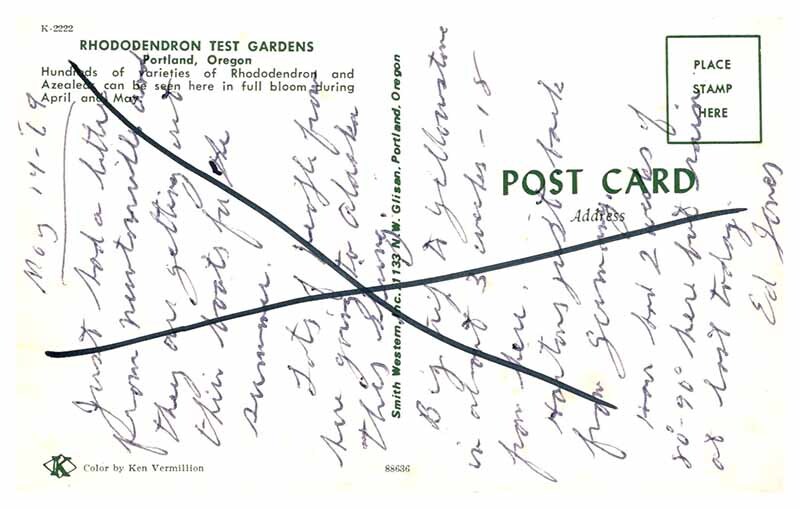 K-2222
RHODODENDRON TEST GARDENS
Portland, Oregon
Hundreds of varieties of Rhododendron and
Azealea can be seen here in full bloom during
April and May.
PLACE
STAMP
HERE
POST CARD
Address
Smith Western, Inc. 1133 N.W. Glisan, Portland, Oregon
Color by Ken Vermillion
88636
May 14-
Just had a letter
from Newtonville and
they are getting out
their boats for the
summer.
Lots of people from
here going to Alaska
this
Big trip to Yellowstone
in about 3 weeks - 18
from here.
just back
from Germany.
have had 2 weeks of
80-90° here but rain
at last today.
Ed Jones